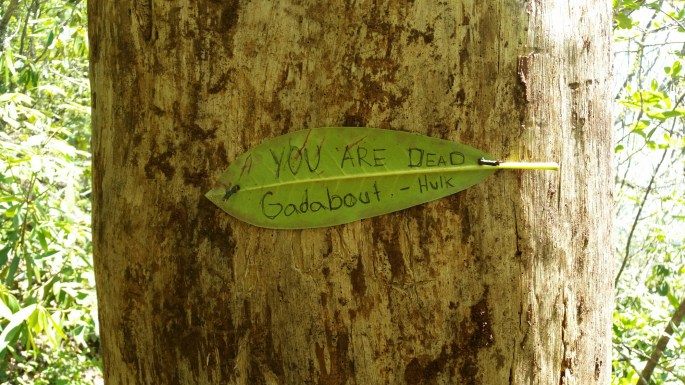 YOU ARE DEAD
Gadabout. - Hulk